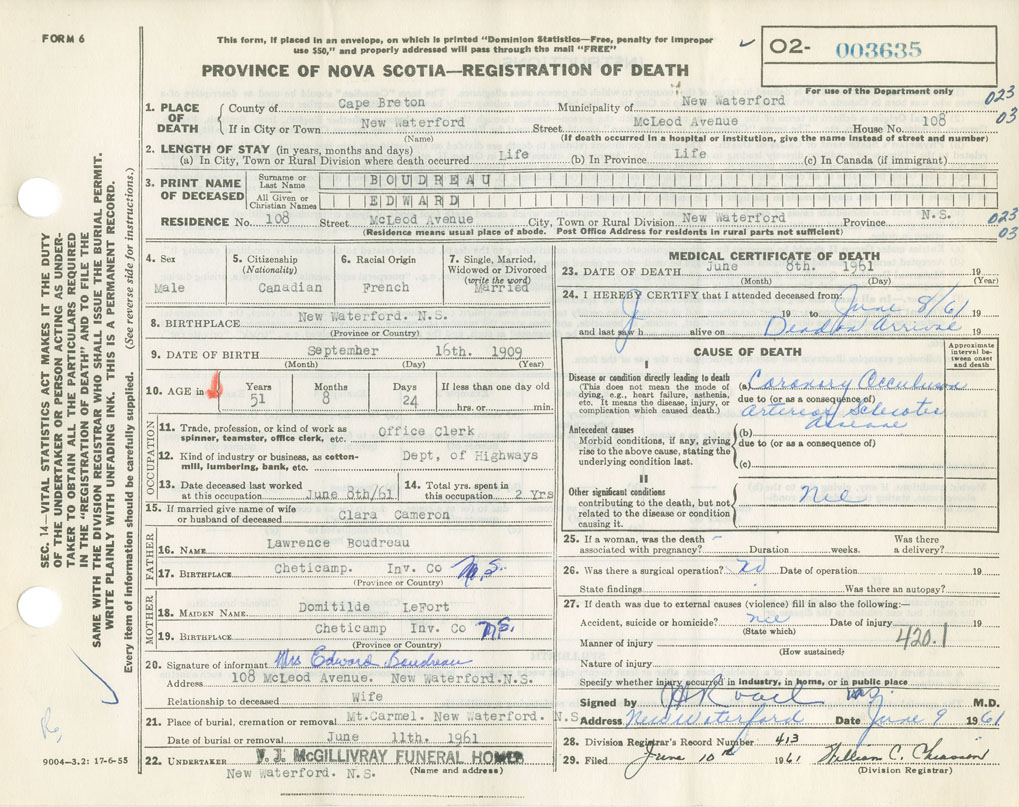 FORM 6
This form, if placed in an envelope, on which is printed "Dominion Statistics—Free, penalty for improper
use $50," and properly addressed will pass through the mail "FREE"
O2- 003635
PROVINCE OF NOVA SCOTIA—REGISTRATION OF DEATH
For use of the Department only
023
03
1. PLACE OF DEATH
County of Cape Breton Municipality of New Waterford
If in City or Town New Waterford Street McLeod Avenue House No. 108
(Name) (If death occurred in a hospital or institution, give the name instead of street and number)
2. LENGTH OF STAY (in years, months and days)
(a) In City, Town or Rural Division where death occurred Life (b) In Province Life (c) In Canada (if immigrant)
3. PRINT NAME OF DECEASED
Surname or Last Name BOUDREAU
All Given or Christian Names EDWARD
RESIDENCE No. 108 Street McLeod Avenue City, Town or Rural Division New Waterford Province N.S.
(Residence means usual place of abode. Post Office Address for residents in rural parts not sufficient)
023
03
4. Sex
Male
5. Citizenship
(Nationality)
Canadian
6. Racial Origin
French
7. Single, Married,
Widowed or Divorced
(write the word)
Married
8. BIRTHPLACE New Waterford. N.S.
(Province or Country)
9. DATE OF BIRTH September 16th. 1909
(Month) (Day) (Year)
10. AGE in Years Months Days If less than one day old
51 8 24 hrs. or min.
OCCUPATION
11. Trade, profession, or kind of work as
spinner, teamster, office clerk, etc. Office Clerk
12. Kind of industry or business, as cotton-
mill, lumbering, bank, etc. Dept, of Highways
13. Date deceased last worked
at this occupation June 8th/61
14. Total yrs. spent in
this occupation 2 Yrs
15. If married give name of wife
or husband of deceased Clara Cameron
FATHER
16. NAME Lawrence Boudreau
17. BIRTHPLACE Cheticamp. Inv. Co N.S.
(Province or Country)
MOTHER
18. MAIDEN NAME Domitilde LeFort
19. BIRTHPLACE Cheticamp Inv. Co N.S.
(Province or Country)
20. Signature of informant Mrs Edward Boudreau
Address 108 McLeod Avenue. New Waterford.N.S.
Relationship to deceased Wife
21. Place of burial, cremation or removal Mt.Carmel. New Waterford. N.S
Date of burial or removal June 11th. 1961
22. UNDERTAKER V. J. McGILLIVRAY FUNERAL HOME
New Waterford. N.S. (Name and address)
MEDICAL CERTIFICATE OF DEATH
23. DATE OF DEATH June 8th. 1961 19
(Month) (Day) (Year)
24. I HEREBY CERTIFY that I attended deceased from:
19 to June 8/61 19
and last saw h alive on Dead on Arrival 19
CAUSE OF DEATH
Approximate
interval be-
tween onset
and death
I
Disease or condition directly leading to death
(This does not mean the mode of
dying, e.g., heart failure, asthenia,
etc. It means the disease, injury, or
complication which caused death.)
(a) Coronary Occulusion
due to (or as a consequence of)
Arterior Sclerotic
disease
Antecedent causes
Morbid conditions, if any, giving
rise to the above cause, stating the
underlying condition last.
(b)
due to (or as a consequence of)
(c)
II
Other significant conditions
contributing to the death, but not
related to the disease or condition
causing it.
Nil
25. If a woman, was the death
associated with pregnancy? Duration weeks. Was there
a delivery?
26. Was there a surgical operation? No Date of operation 19
State findings Was there an autopsy?
27. If death was due to external causes (violence) fill in also the following:—
Accident, suicide or homicide? nil Date of injury 19
(State which)
Manner of injury 420.1
(How sustained)
Nature of injury
Specify whether injury occurred in industry, in home, or in public place
Signed by M.D.
Address New Waterford Date June 9 1961
28. Division Registrar's Record Number 413
29. Filed June 10th 1961 William C. Chiasson
(Division Registrar)
SEC. 14—VITAL STATISTICS ACT MAKES IT THE DUTY
OF THE UNDERTAKER OR PERSON ACTING AS UNDER-
TAKER TO OBTAIN ALL THE PARTICULARS REQUIRED
IN THE "REGISTRATION OF DEATH" AND TO FILE THE
SAME WITH THE DIVISION REGISTRAR WHO SHALL ISSUE THE BURIAL PERMIT.
WRITE PLAINLY WITH UNFADING INK. THIS IS A PERMANENT RECORD.
Every item of Information should be carefully supplied. (See reverse side for instructions.)
9004-3.2: 17-6-55